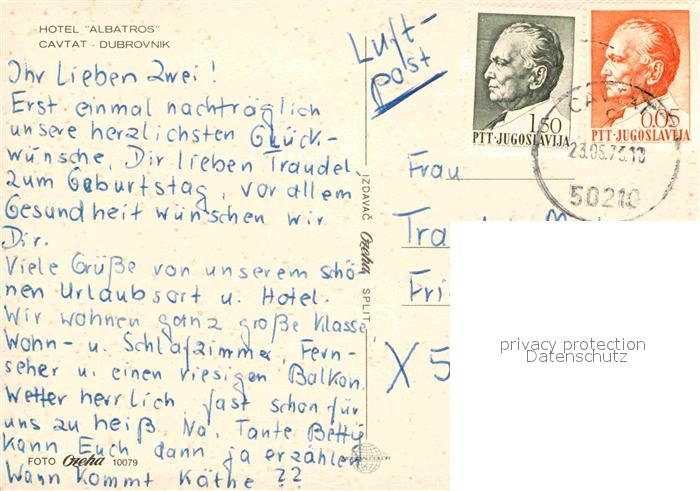 HOTEL "ALBATROS"
CAVTAT - DUBROVNIK
Ihr Lieben Zwei!
Erst einmal nachträglich
unsere herzlichsten Glück-
wünsche, Dir lieben Traudel
zum Geburtstag, vor allem
Gesundheit wünschen wir
Dir.
Viele Grüße von unserem schö-
nen Urlaubsort u. Hotel.
Wir wohnen ganz große Klasse,
Wohn- u. Schlafzimmer, Fern-
seher u. einen riesigen Balkon.
Wetter herrlich, fast schon für
uns zu heiß. Na, Tante Betty
kann Euch dann ja erzählen
Wann kommt Käthe ??
FOTO Ozeha 10079
IZDAVAČ Ozeha SPLIT
Luft-
post
1.50
PTT-JUGOSLAVIJA
0.05
PTT-JUGOSLAVIJA
50210
Frau
X 5
privacy protection
Datenschutz